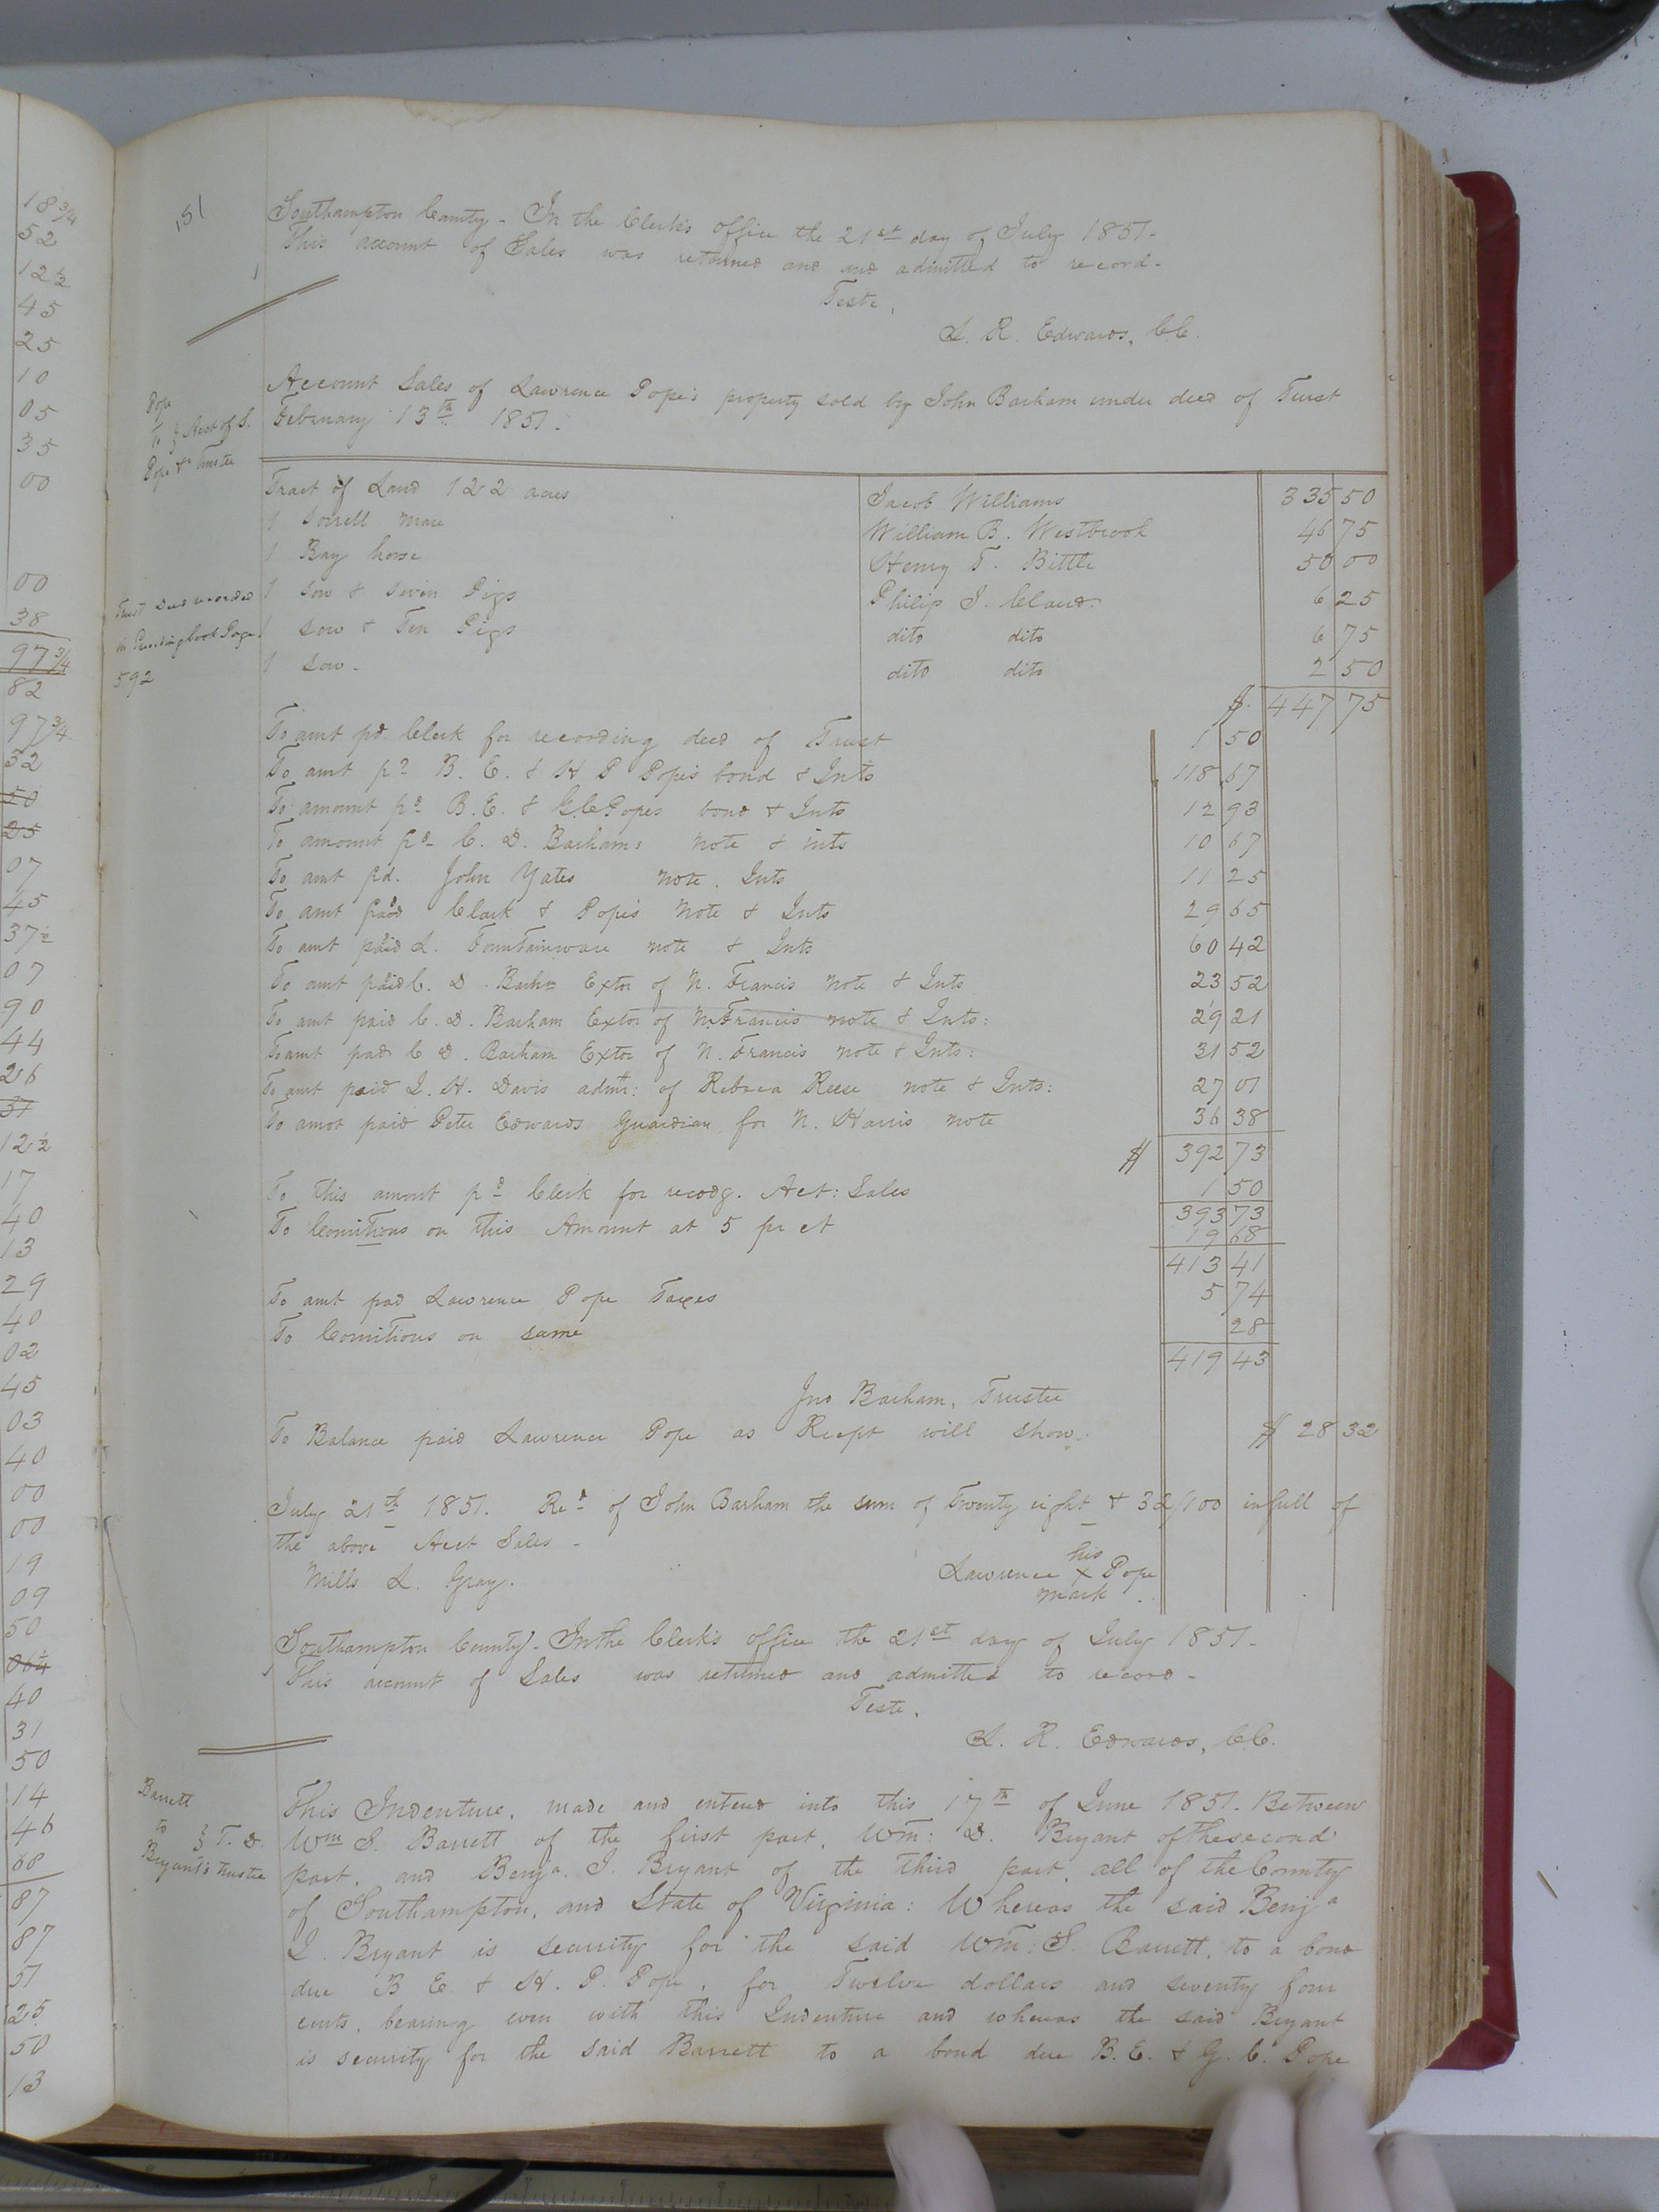 151
Southampton County - In the Clerk's office the 21st day of July 1851-
This account of Sales was returned and and admitted to record-
Teste,
L. R. Edwards, CC.
Pope
To } Acct of S.
Pope & Trustee
Account Sales of Lawrence Pope's property sold by John Barham under deed of Trust
February 13th 1851.
Trust Deed recorded
in Preceding book Page
592
Tract of Land 122 acres Jacob Williams 335 50
1 Sorrell mare William B. Westbrook 46 75
1 Bay horse Henry T. Bittle 50 00
1 Sow & Seven Pigs Philip J. Claud. 6 25
1 Sow & Ten Pigs dito dito 6 75
1 Sow - dito dito 2 50
$. 447 75
To amt pd. Clerk for recording deed of Trust 1 50
To amt pd B. E. & H P Pope's bond & Ints 118 67
To amount pd B. E. & G. C Popes bond & Ints 12 93
To amount pd C. D. Barhams note & ints 10 67
To amt pd. John Yates note. Ints 11 25
To amt paid Clark & Pope's Note & Ints 29 65
To amt paid L. Fountainware note & Ints 60 42
To amt paid C. D. Barhm Extor of N. Francis note & Ints 23 52
To amt paid C. D. Barham Extor of N. Francis note & Ints: 29 21
To amt paid C D. Barham Extor of N. Francis note & Ints: 31 52
To amt paid J. H. Davis admr: of Rebeca Reese note & Ints: 27 01
To amot paid Peter Edwards Guardian for N. Harris note 36 38
$ 392 73
To this amont pd Clerk for recodg. Act: Sales 1 50
393 73
To Comitions on this Amount at 5 pr ct 19 68
413 41
To amt pad Lawrence Pope Taxes 5 74
To Comitions on same 28
419 43
Jno Barham, Trustee
To Balance paid Lawrence Pope as Recept will show. $ 28 32
July 21th 1851. Recd of John Barham the sum of Twenty eight & 32/100 in full of
the above Acct Sales -
Mills L. Gray. Lawrence his X mark Pope
Southampton County). In the Clerk's office the 21st day of July 1851-
This account of Sales was returned and admitted to record-
Teste.
L. R. Edwards, CC.
Barrett
to } T. D.
Bryant's Trustee
This Indenture, made and entered into this 17th of June 1851. Between
Wm S. Barrett of the first part, Wm: D. Bryant of the second
part, and Benja. J. Bryant of the third part, all of the County
of Southampton, and State of Virginia: Whereas the said Benja
J. Bryant is security for the said Wm: S. Barrett, to a bond
due B E. & H. P. Pope, for Twelve dollars and seventy four
cents, bearing even with this Indenture and whereas the said Bryant
is security for the said Barrett to a bond due B. E. & G. C. Pope
18 3/4
52
12 1/2
45
25
10
05
35
00
00
38
97 3/4
82
97 3/4
32
50
25
07
45
37 1/2
07
90
44
26
31
12 1/2
17
40
13
29
40
02
45
03
40
00
00
19
09
50
06 1/4
40
31
50
14
46
68
87
87
57
25
50
13